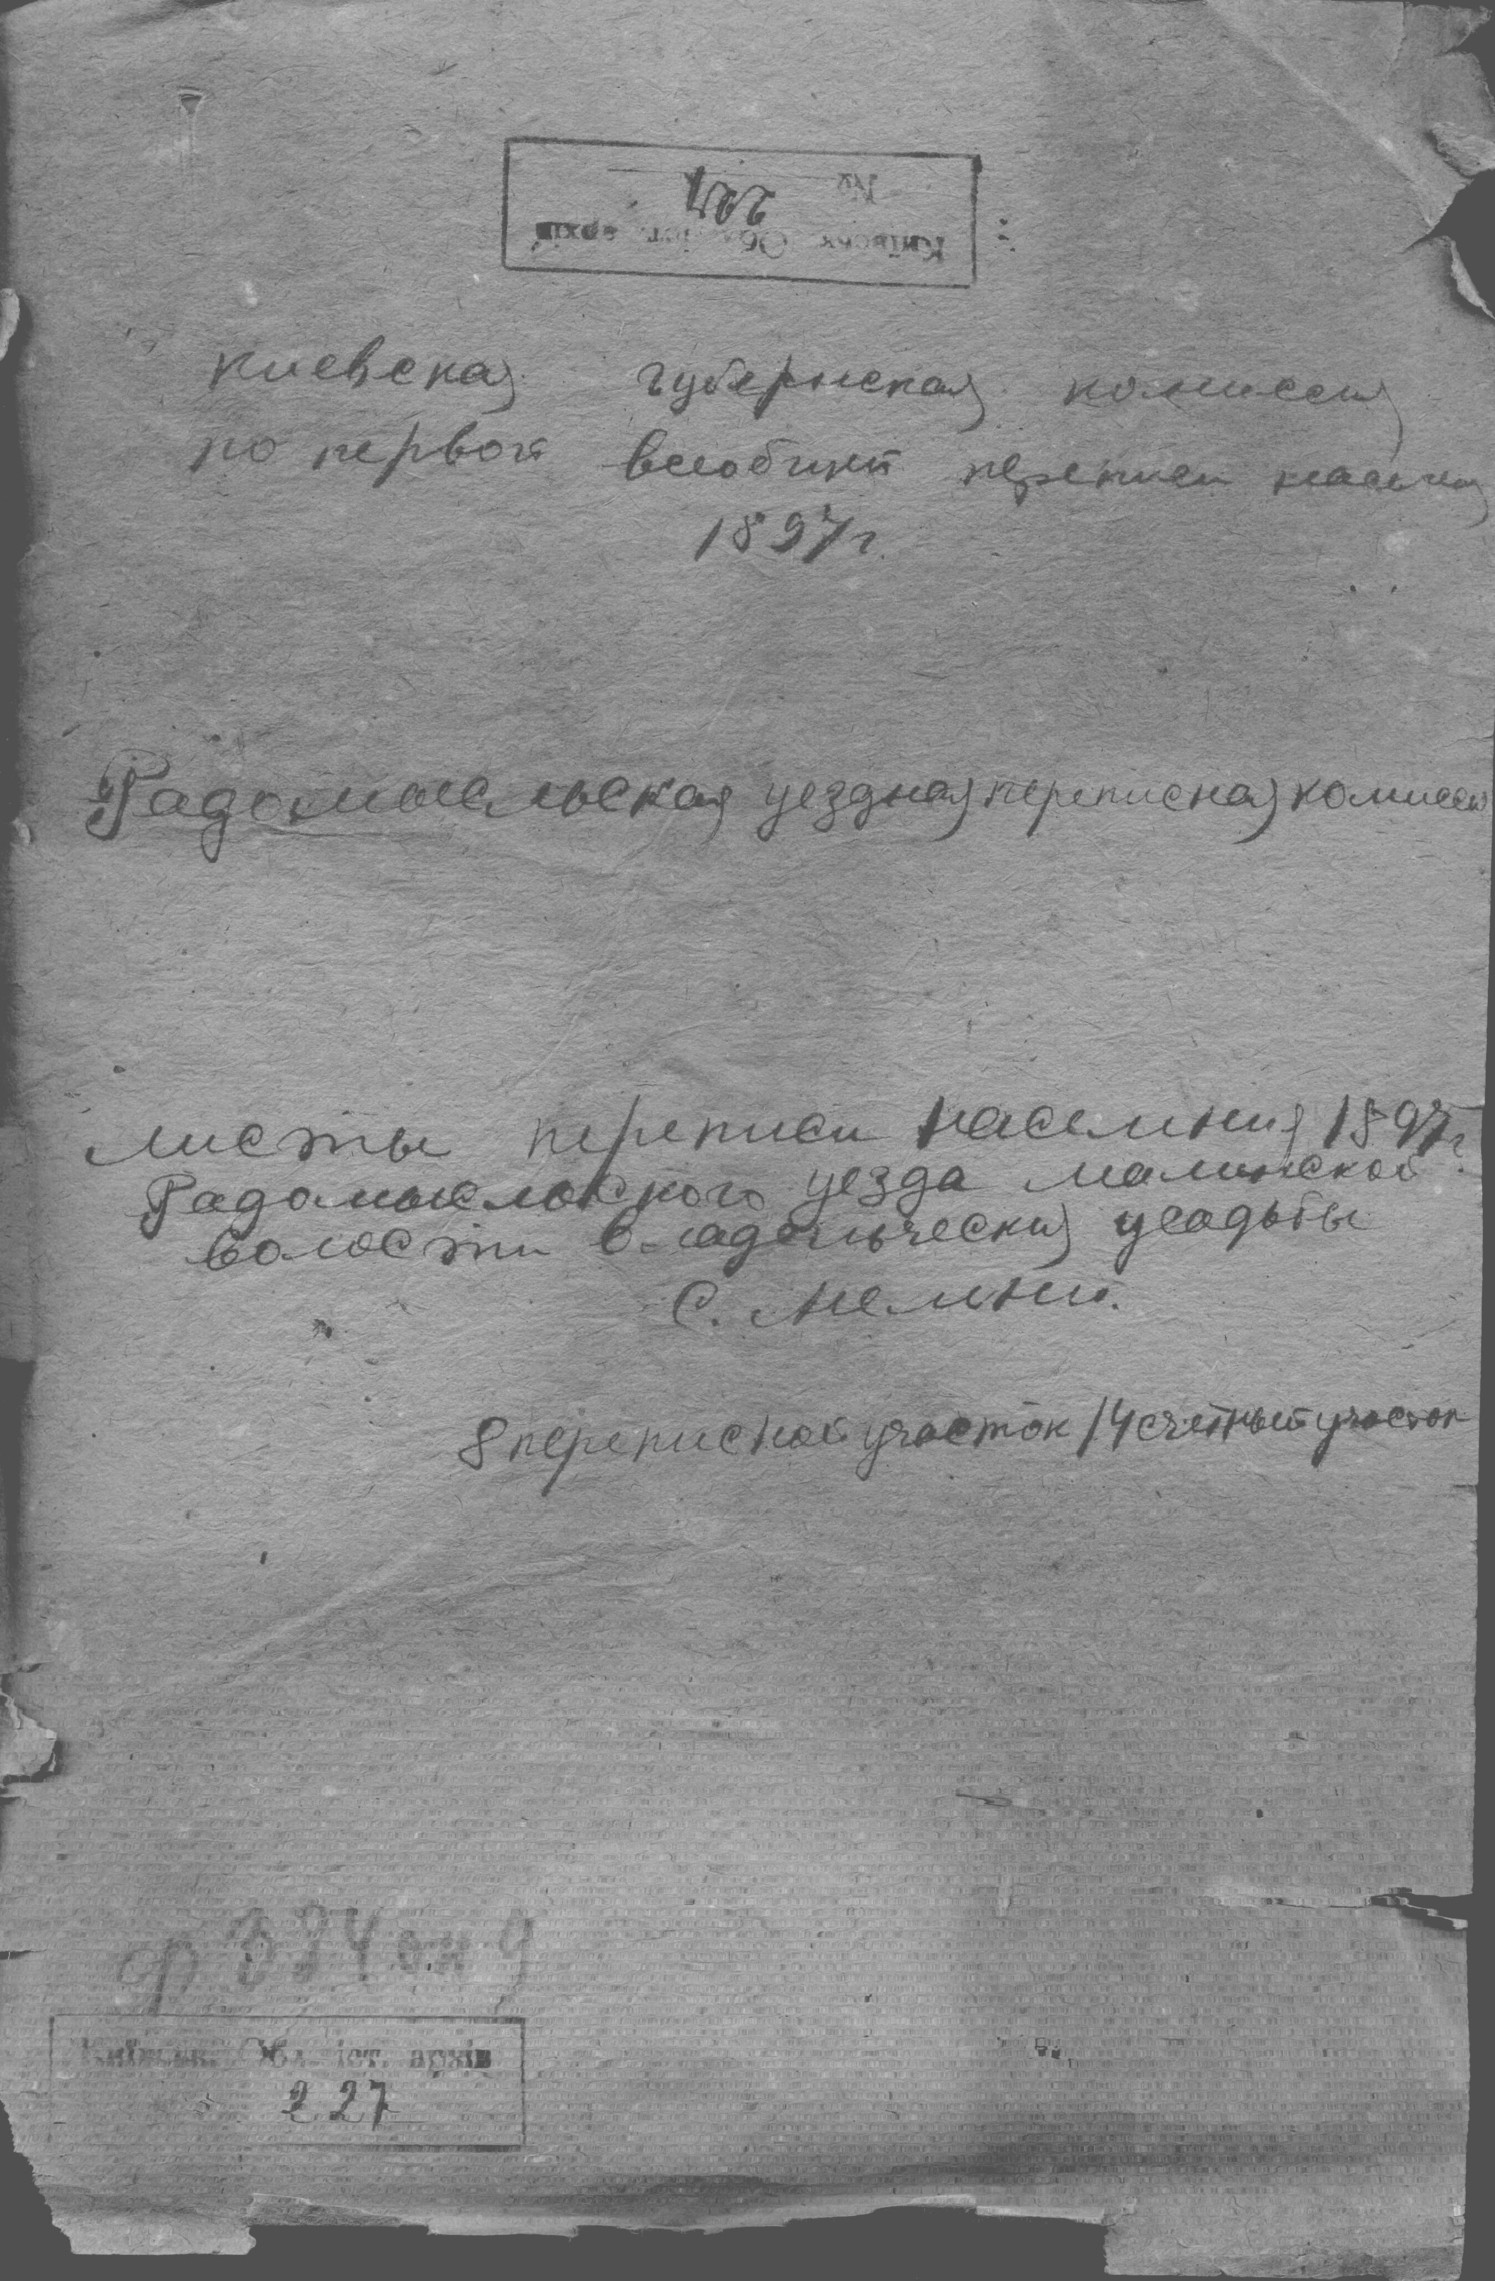 Київськ. Обл. іст. архів
№ 227
Киевская губернская комиссия
по первой всеобщей переписи населения
1897 г.
Радомысльская уездная переписная комиссия
Листы переписи населения 1897 г.
Радомысльского уезда Малинской
волости владельческия усадьбы
С.
8 переписной участок 14 счетный участок
ф 384 оп 9
Київськ. Обл. іст. архів
227